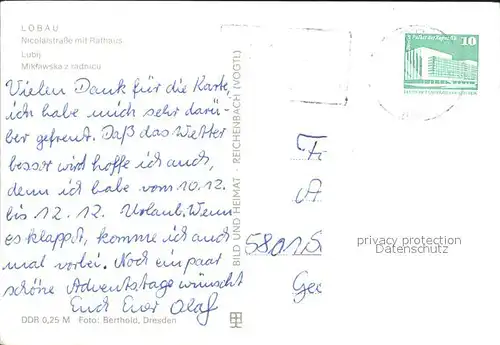 LÖBAU
Nicolaistraße mit Rathaus
Lubij
Mikławska z radnicu
Vielen Dank für die Karte,
ich habe mich sehr darü-
ber gefreut. Daß das Wetter
besser wird hoffe ich auch,
denn ich habe vom 10.12.
bis 12.12. Urlaub. Wenn
es klappt, komme ich auch
mal vorbei. Noch ein paar
schöne Adventstage wünscht
Euch Euer Olaf
DDR 0,25 M Foto: Berthold, Dresden
BILD UND HEIMAT · REICHENBACH (VOGTL)
10
5801
privacy protection
Datenschutz